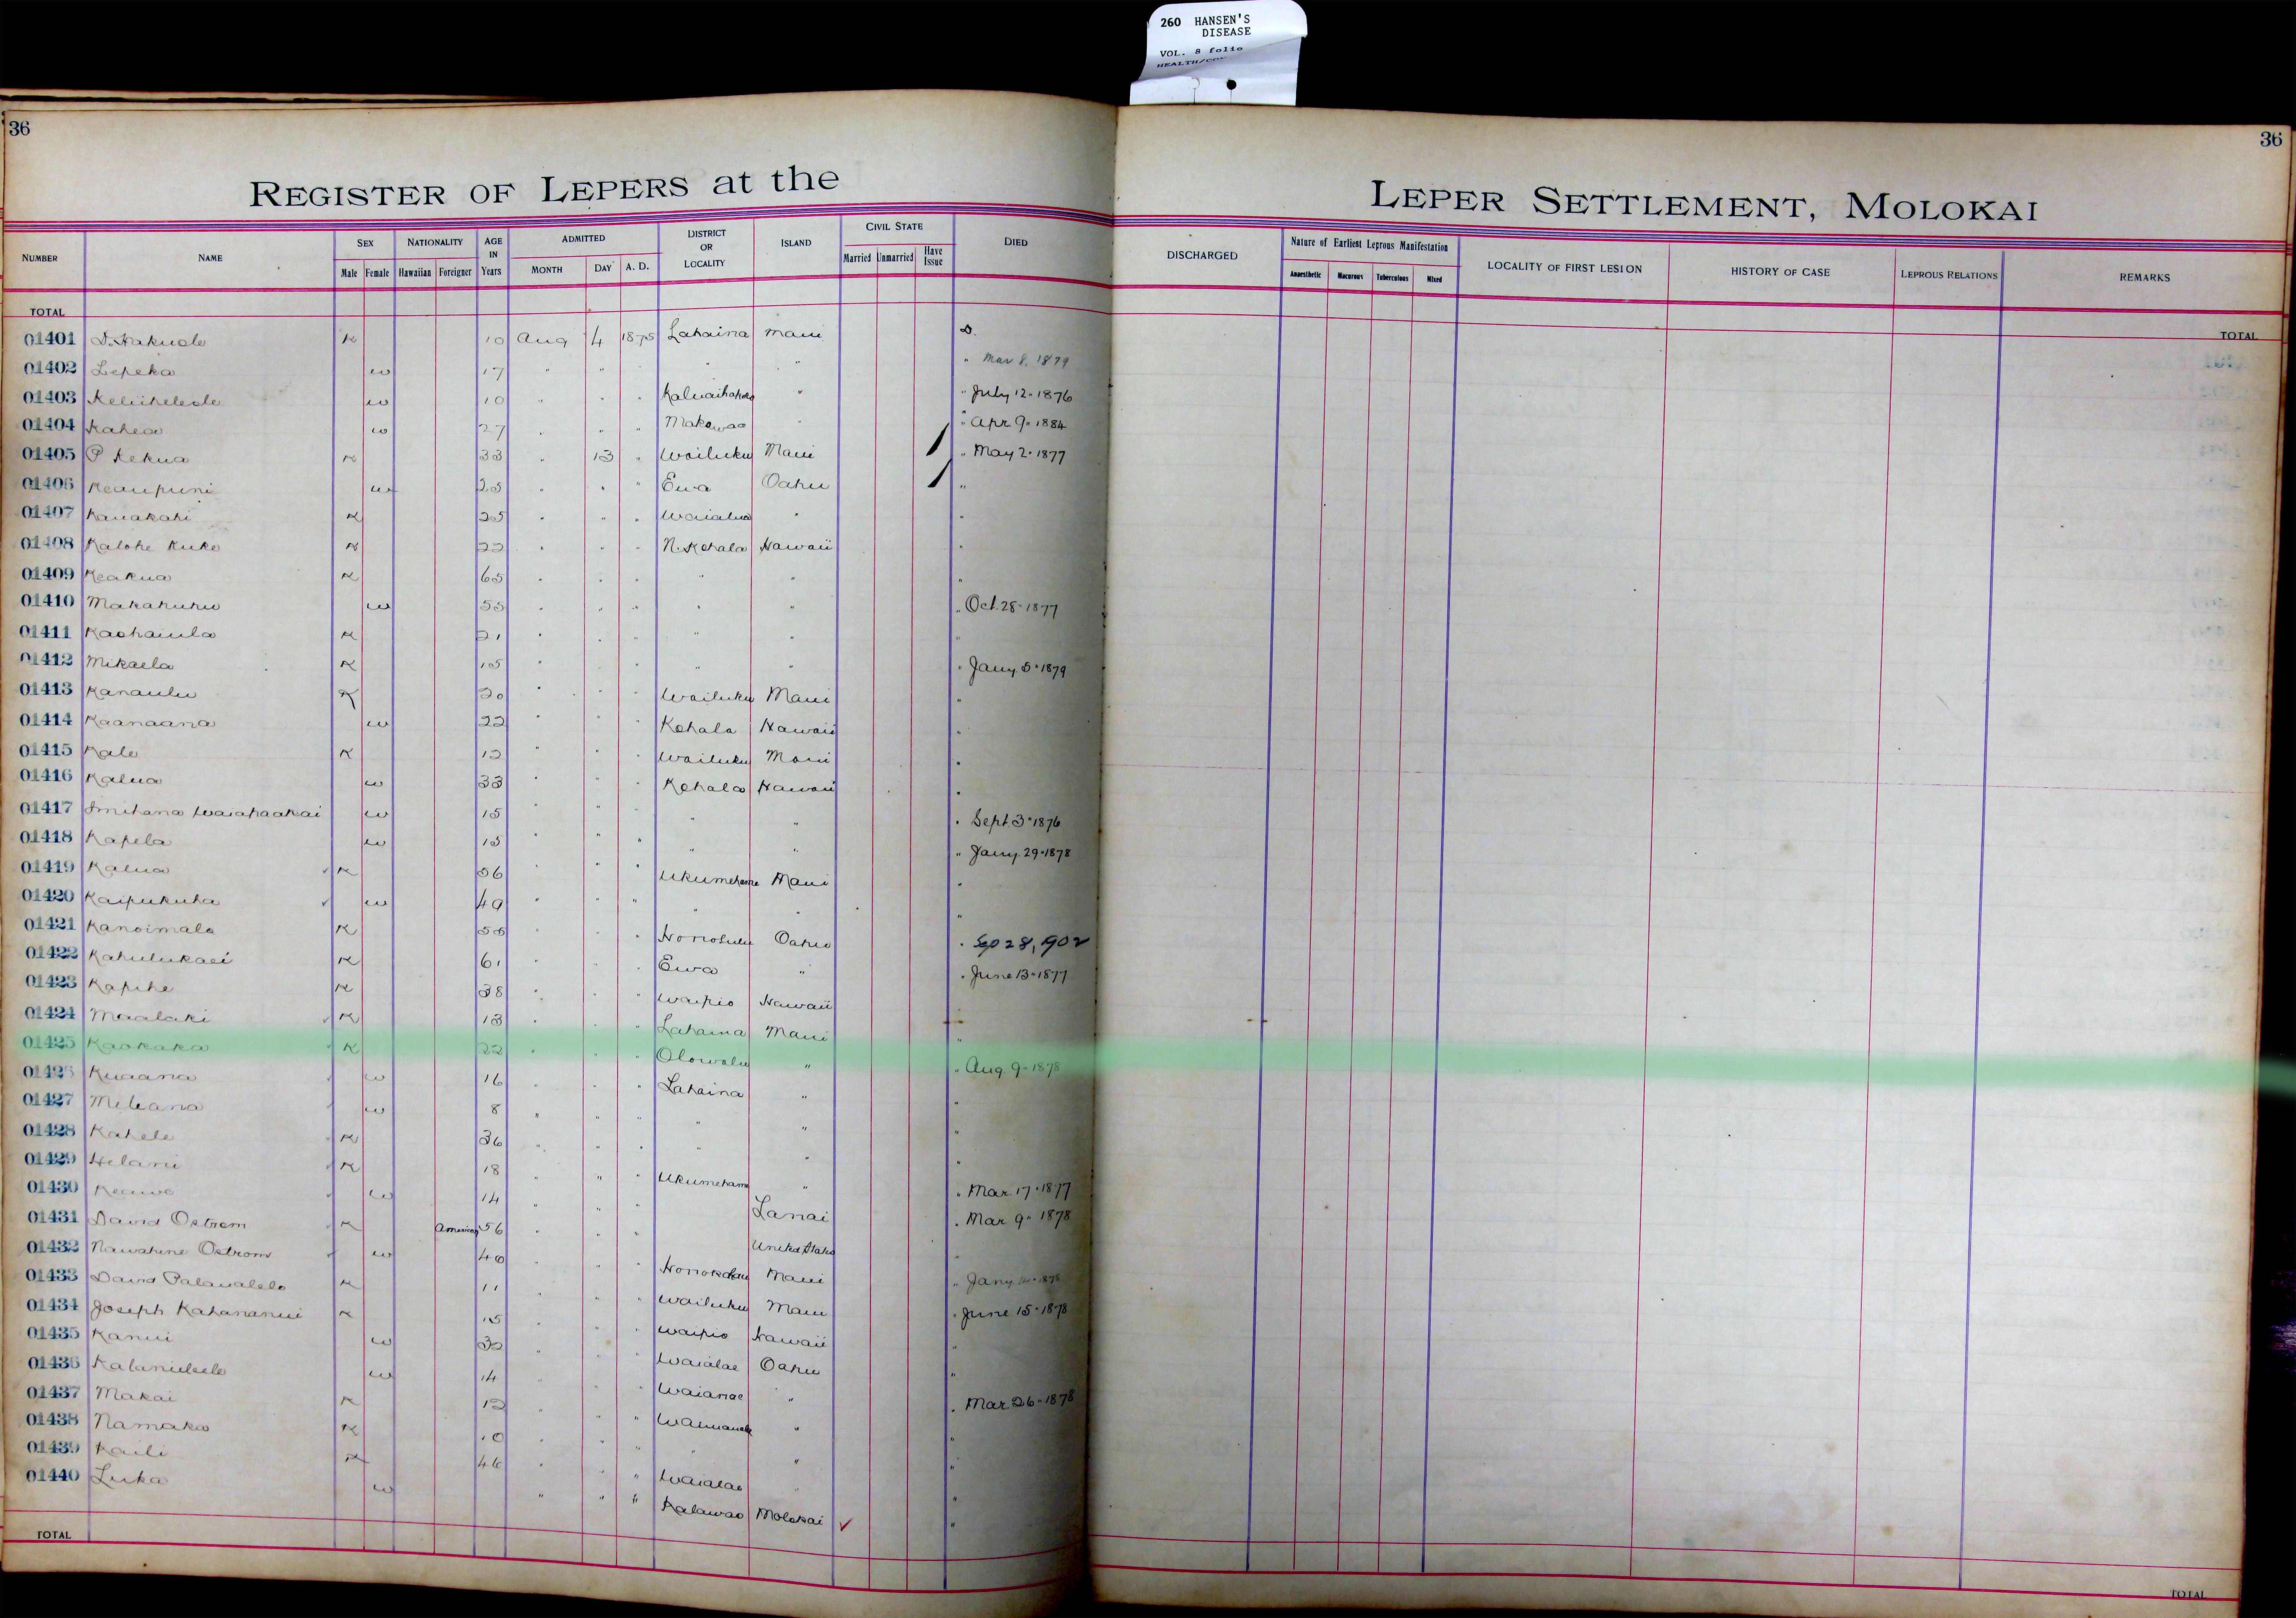 260 HANSEN'S
DISEASE
VOL. 8 folio
36
36
REGISTER OF LEPERS at the LEPER SETTLEMENT, MOLOKAI
NUMBER NAME SEX NATIONALITY AGE IN Years ADMITTED DISTRICT OR LOCALITY ISLAND CIVIL STATE DIED DISCHARGED Nature of Earliest Leprous Manifestation LOCALITY OF FIRST LESION HISTORY OF CASE LEPROUS RELATIONS REMARKS
Male Female Hawaiian Foreigner MONTH DAY A. D. Married Unmarried Have Issue Anaesthetic Macurous Tuberculous Mixed
TOTAL TOTAL
01401 D. Hakuole K 10 Aug 4 1875 Lahaina Maui D.
01402 Lepeka w 17 " " " " " " Mar 8, 1879
01403 w 10 " " " " " July 12-1876
01404 Kahea w 27 " " " Makawao " " Apr 9-1884
01405 P Kekua K 33 " 13 " Wailuku Maui " May 2-1877
01406 Keaupuni w 25 " " " Ewa Oahu "
01407 Kauakahi K 25 " " " Waialua " "
01408 Kalohe Kuke K 22 " " " N. Kohala Hawaii "
01409 Keakua K 65 " " " " " "
01410 Makahuhu w 55 " " " " " " Oct. 28-1877
01411 Kaohaiula K 21 " " " " " "
01412 Mikaela K 15 " " " " " " Jany. 5-1879
01413 Kanaulu K 20 " " " Wailuku Maui "
01414 Kaanaana w 22 " " " Kohala Hawaii "
01415 Kale K 12 " " " Wailuku Maui "
01416 Kalua w 33 " " " Kohala Hawaii "
01417 w 15 " " " " " " Sept. 3-1876
01418 Kapela w 15 " " " " " " Jany. 29-1878
01419 Kalua K 56 " " " Ukumehame Maui "
01420 Kaipukuha w 49 " " " " " "
01421 Kanoimalo K " " " Honolulu Oahu " Sep 28, 1902
01422 Kahulukaei K 61 " " " Ewa " " June 13-1877
01423 Kapihe K 38 " " " Waipio Hawaii
01424 Maalaki K 13 " " " Lahaina Maui "
01425 Kaokaka K 22 " " " Olowalu " " Aug 9-1878
01426 Kuaana w 16 " " " Lahaina " "
01427 Meleana w 8 " " " " " "
01428 Kahele K 36 " " " " " "
01429 Helani K 18 " " " Ukumehame " " Mar. 17-1877
01430 Keawe w 14 " " " Lanai " Mar. 9-1878
01431 David Ostrom K American 56 " " " United States "
01432 Nawahine Ostrom w " " " Honokohau Maui " Jany.
01433 David Palaualelo K 11 " " " Wailuku Maui " June 15-1878
01434 Joseph Kahananui K 15 " " " Waipio Hawaii "
01435 Kanui w 32 " " " Waialae Oahu "
01436 w 14 " " " Waianae " " Mar. 26-1878
01437 Makai K 12 " " " " "
01438 Namaka K 10 " " " " "
01439 Kaili K 46 " " " Waialae " "
01440 Luka w " " " Kalawao Molokai "
TOTAL TOTAL